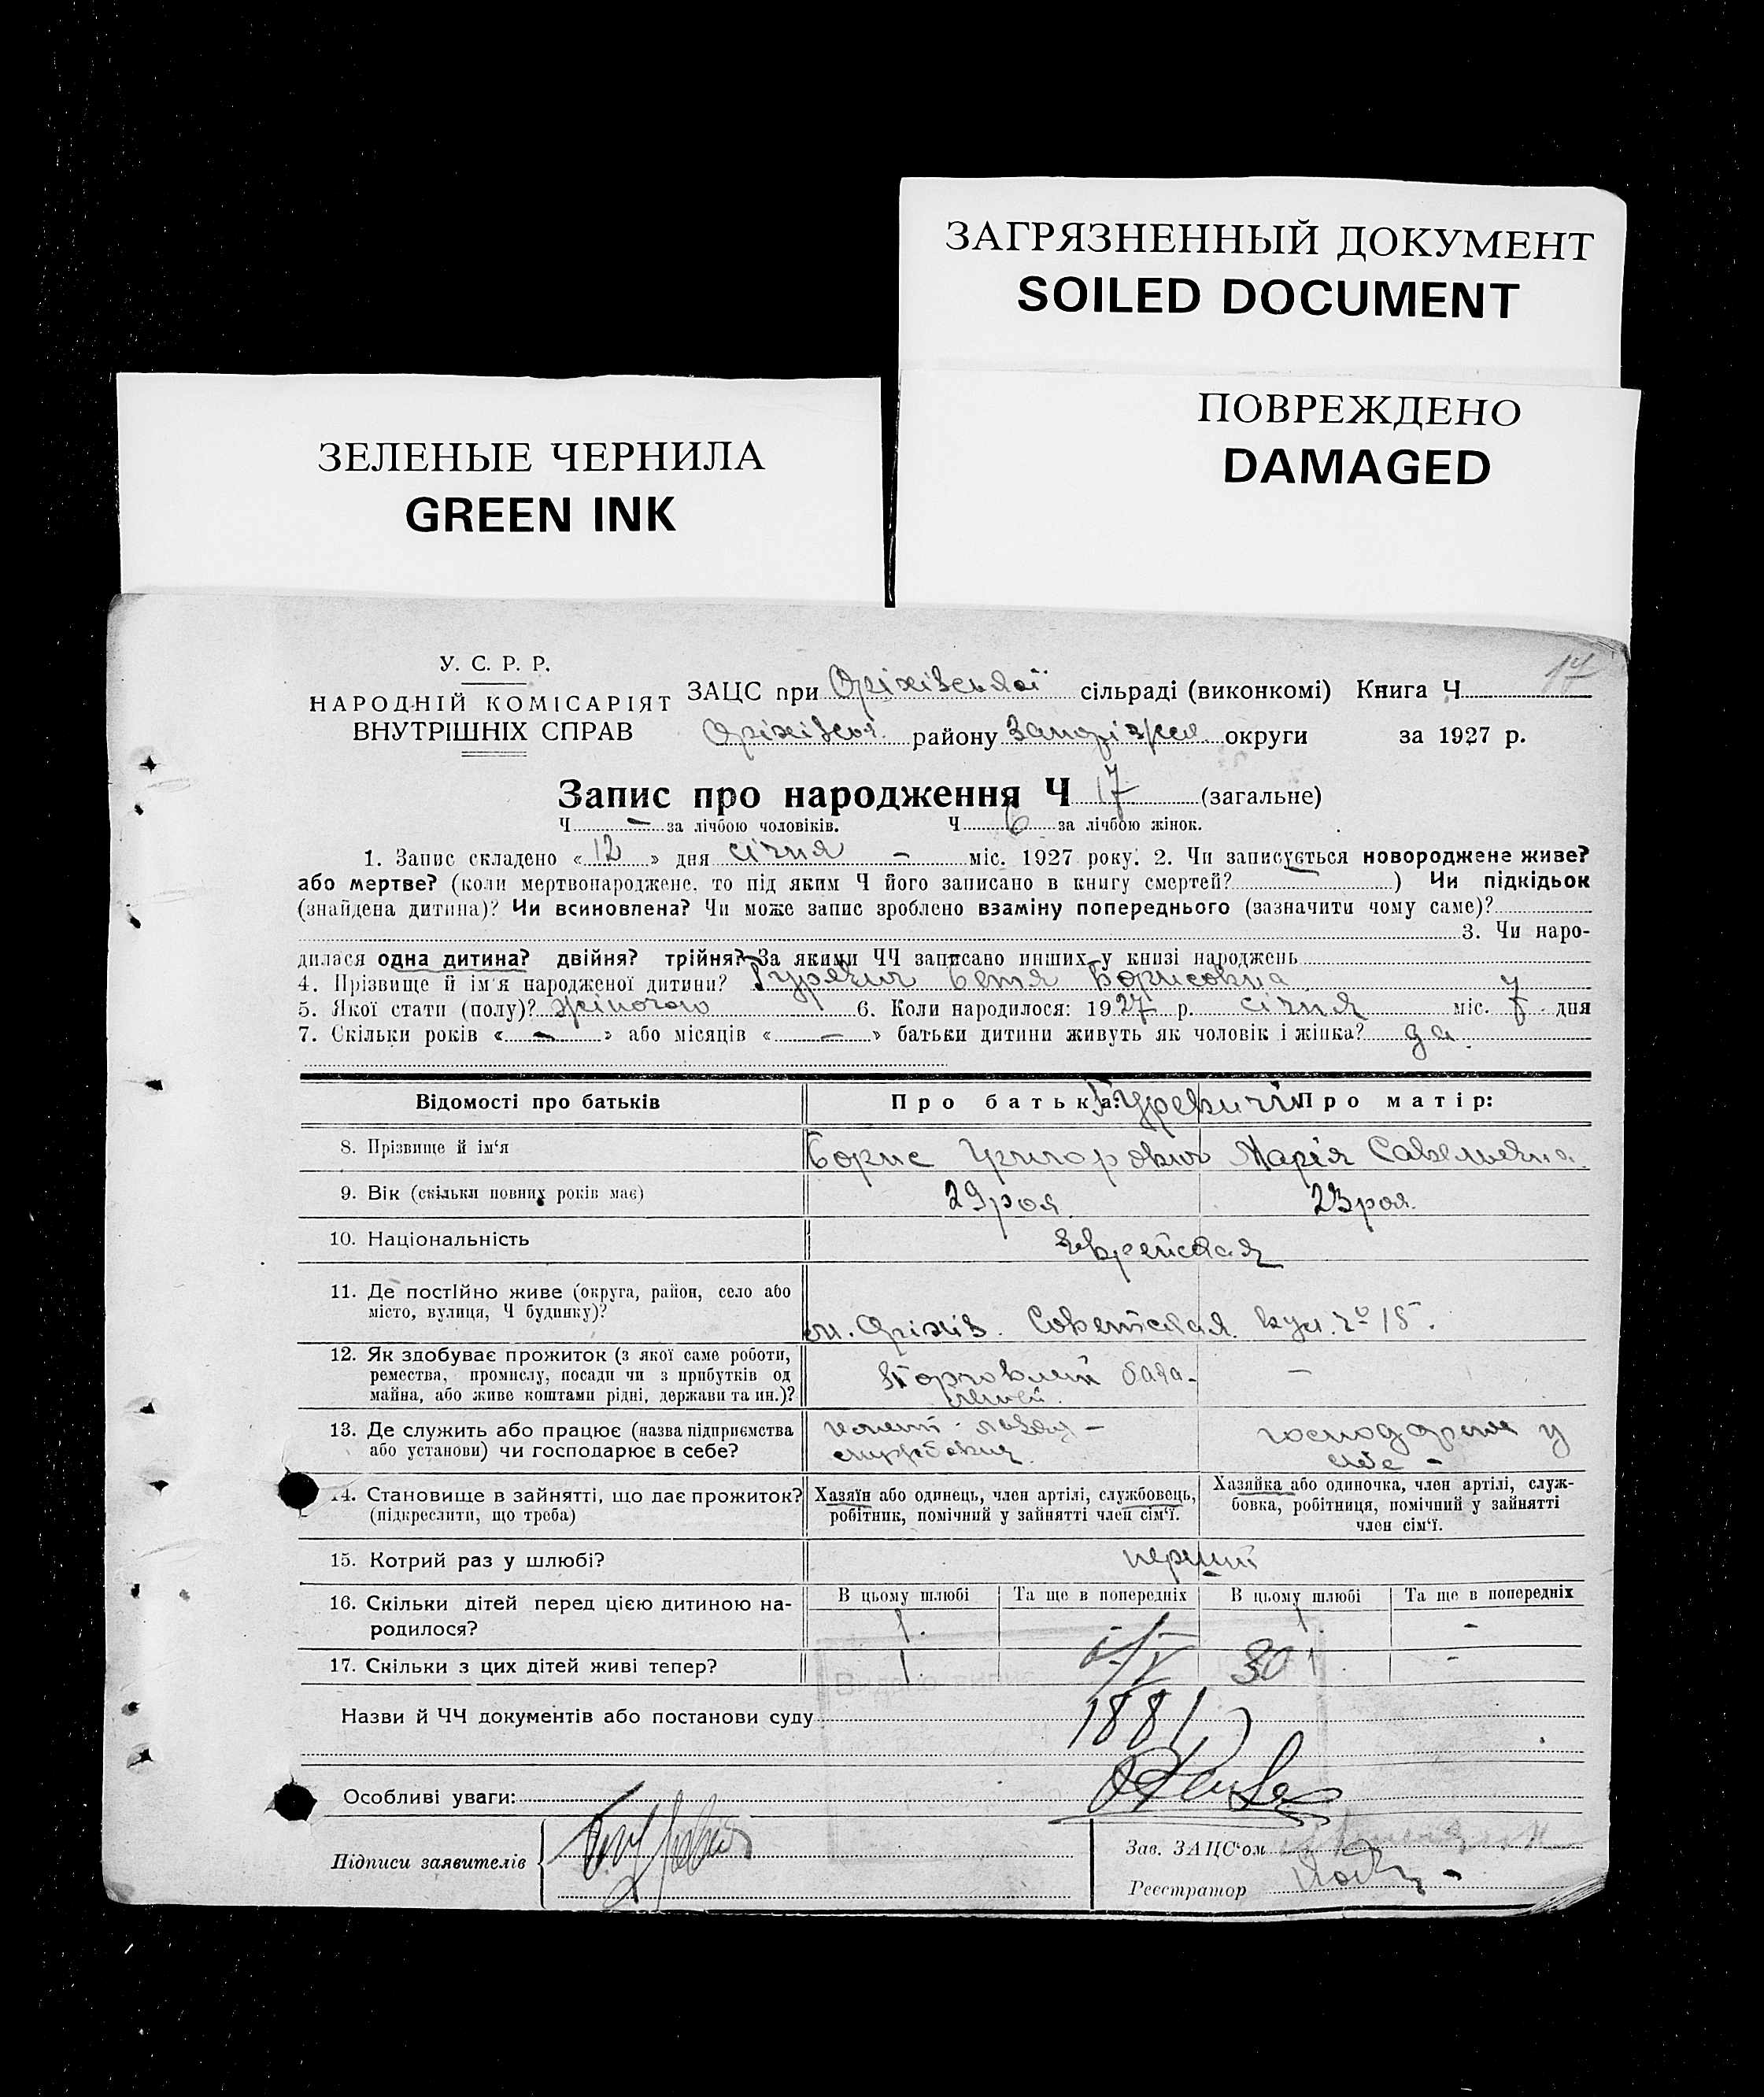 ЗАГРЯЗНЕННЫЙ ДОКУМЕНТ
SOILED DOCUMENT
ПОВРЕЖДЕНО
DAMAGED
ЗЕЛЕНЫЕ ЧЕРНИЛА
GREEN INK
У. С. Р. Р.
НАРОДНІЙ КОМІСАРІЯТ
ВНУТРІШНІХ СПРАВ
17
ЗАЦС при Оріхівської сільраді (виконкомі) Книга Ч
Оріхівськ. району Запоріжжя округи за 1927 р.
Запис про народження Ч 17 (загальне)
Ч — за лічбою чоловіків. Ч 6 за лічбою жінок.
1. Запис складено « 12 » дня січня — міс. 1927 року. 2. Чи записується новороджене живе?
або мертве? (коли мертвонароджене, то під яким Ч його записано в книгу смертей? ) Чи підкідьок
(знайдена дитина)? Чи всиновлена? Чи може запис зроблено взаміну попереднього (зазначити чому саме)?
3. Чи наро-
дилася одна дитина? двійня? трійня? За якими ЧЧ записано инших у книзі народжень
4. Прізвище й ім'я народженої дитини? Гуревич Бетя Борисовна
5. Якої стати (полу)? жіночого 6. Коли народилося: 1927 р. січня міс. 7 дня
7. Скільки років « — » або місяців « — » батьки дитини живуть як чоловік і жінка? да.
Відомості про батьків Про батька: Гуревичи Про матір:
8. Прізвище й ім'я Борис Григорович Марія Савельевна.
9. Вік (скільки повних років має) 29 рок. 23 рок.
10. Національність Єврейская
11. Де постійно живе (округа, район, село або
місто, вулиця, Ч будинку)? м. Оріхів. Советская вул. 15.
12. Як здобуває прожиток (з якої саме роботи,
ремества, промислу, посади чи з прибутків од
майна, або живе коштами рідні, держави та ин.)? Торговлей бака- —
лейной.
13. Де служить або працює (назва підприємства
або установи) чи господарює в себе? господарює у
себе -
14. Становище в зайнятті, що дає прожиток?
(підкреслити, що треба)
Хазяїн або одинець, член артілі, службовець,
робітник, помічний у зайнятті член сім'ї.
Хазяйка або одиночка, член артілі, служ-
бовка, робітниця, помічний у зайнятті
член сім'ї.
15. Котрий раз у шлюбі? перший
16. Скільки дітей перед цією дитиною на-
родилося?
В цьому шлюбі Та ще в попередніх В цьому шлюбі Та ще в попередніх
1. — 1 -
17. Скільки з цих дітей живі тепер? 1. 1. -
30
Назви й ЧЧ документів або постанови суду
1881
Особливі уваги:
Підписи заявителів
Зав. ЗАЦС'ом
Реєстратор